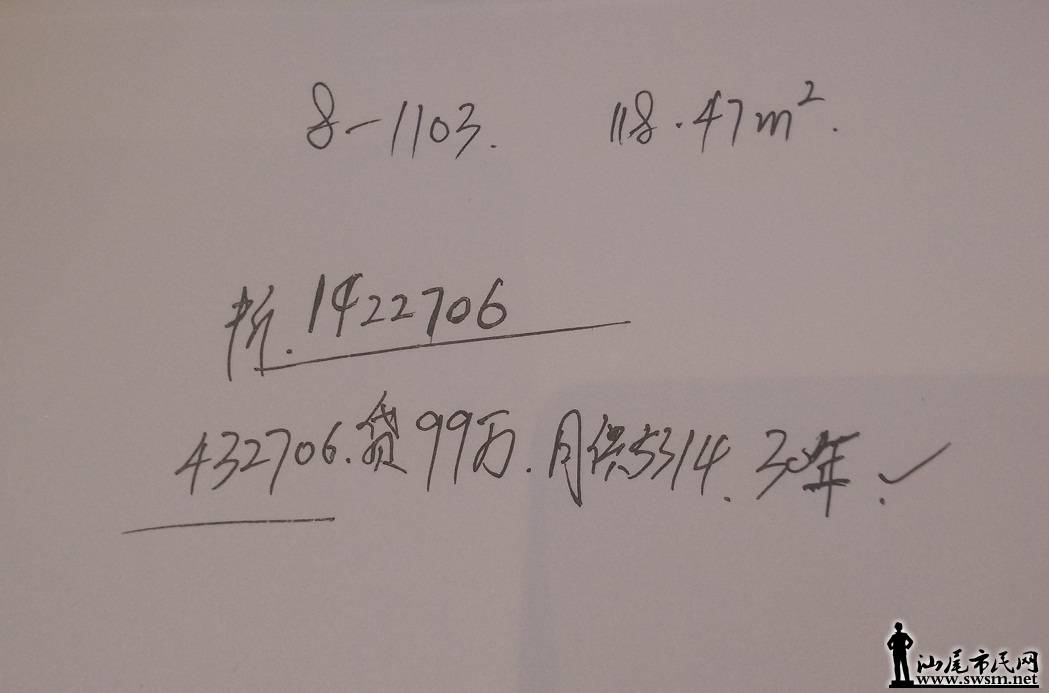 8-1103. 118.47m².
折.1422706
432706.贷99万.月供5314.30年.✓
汕尾市民网
www.swsm.net